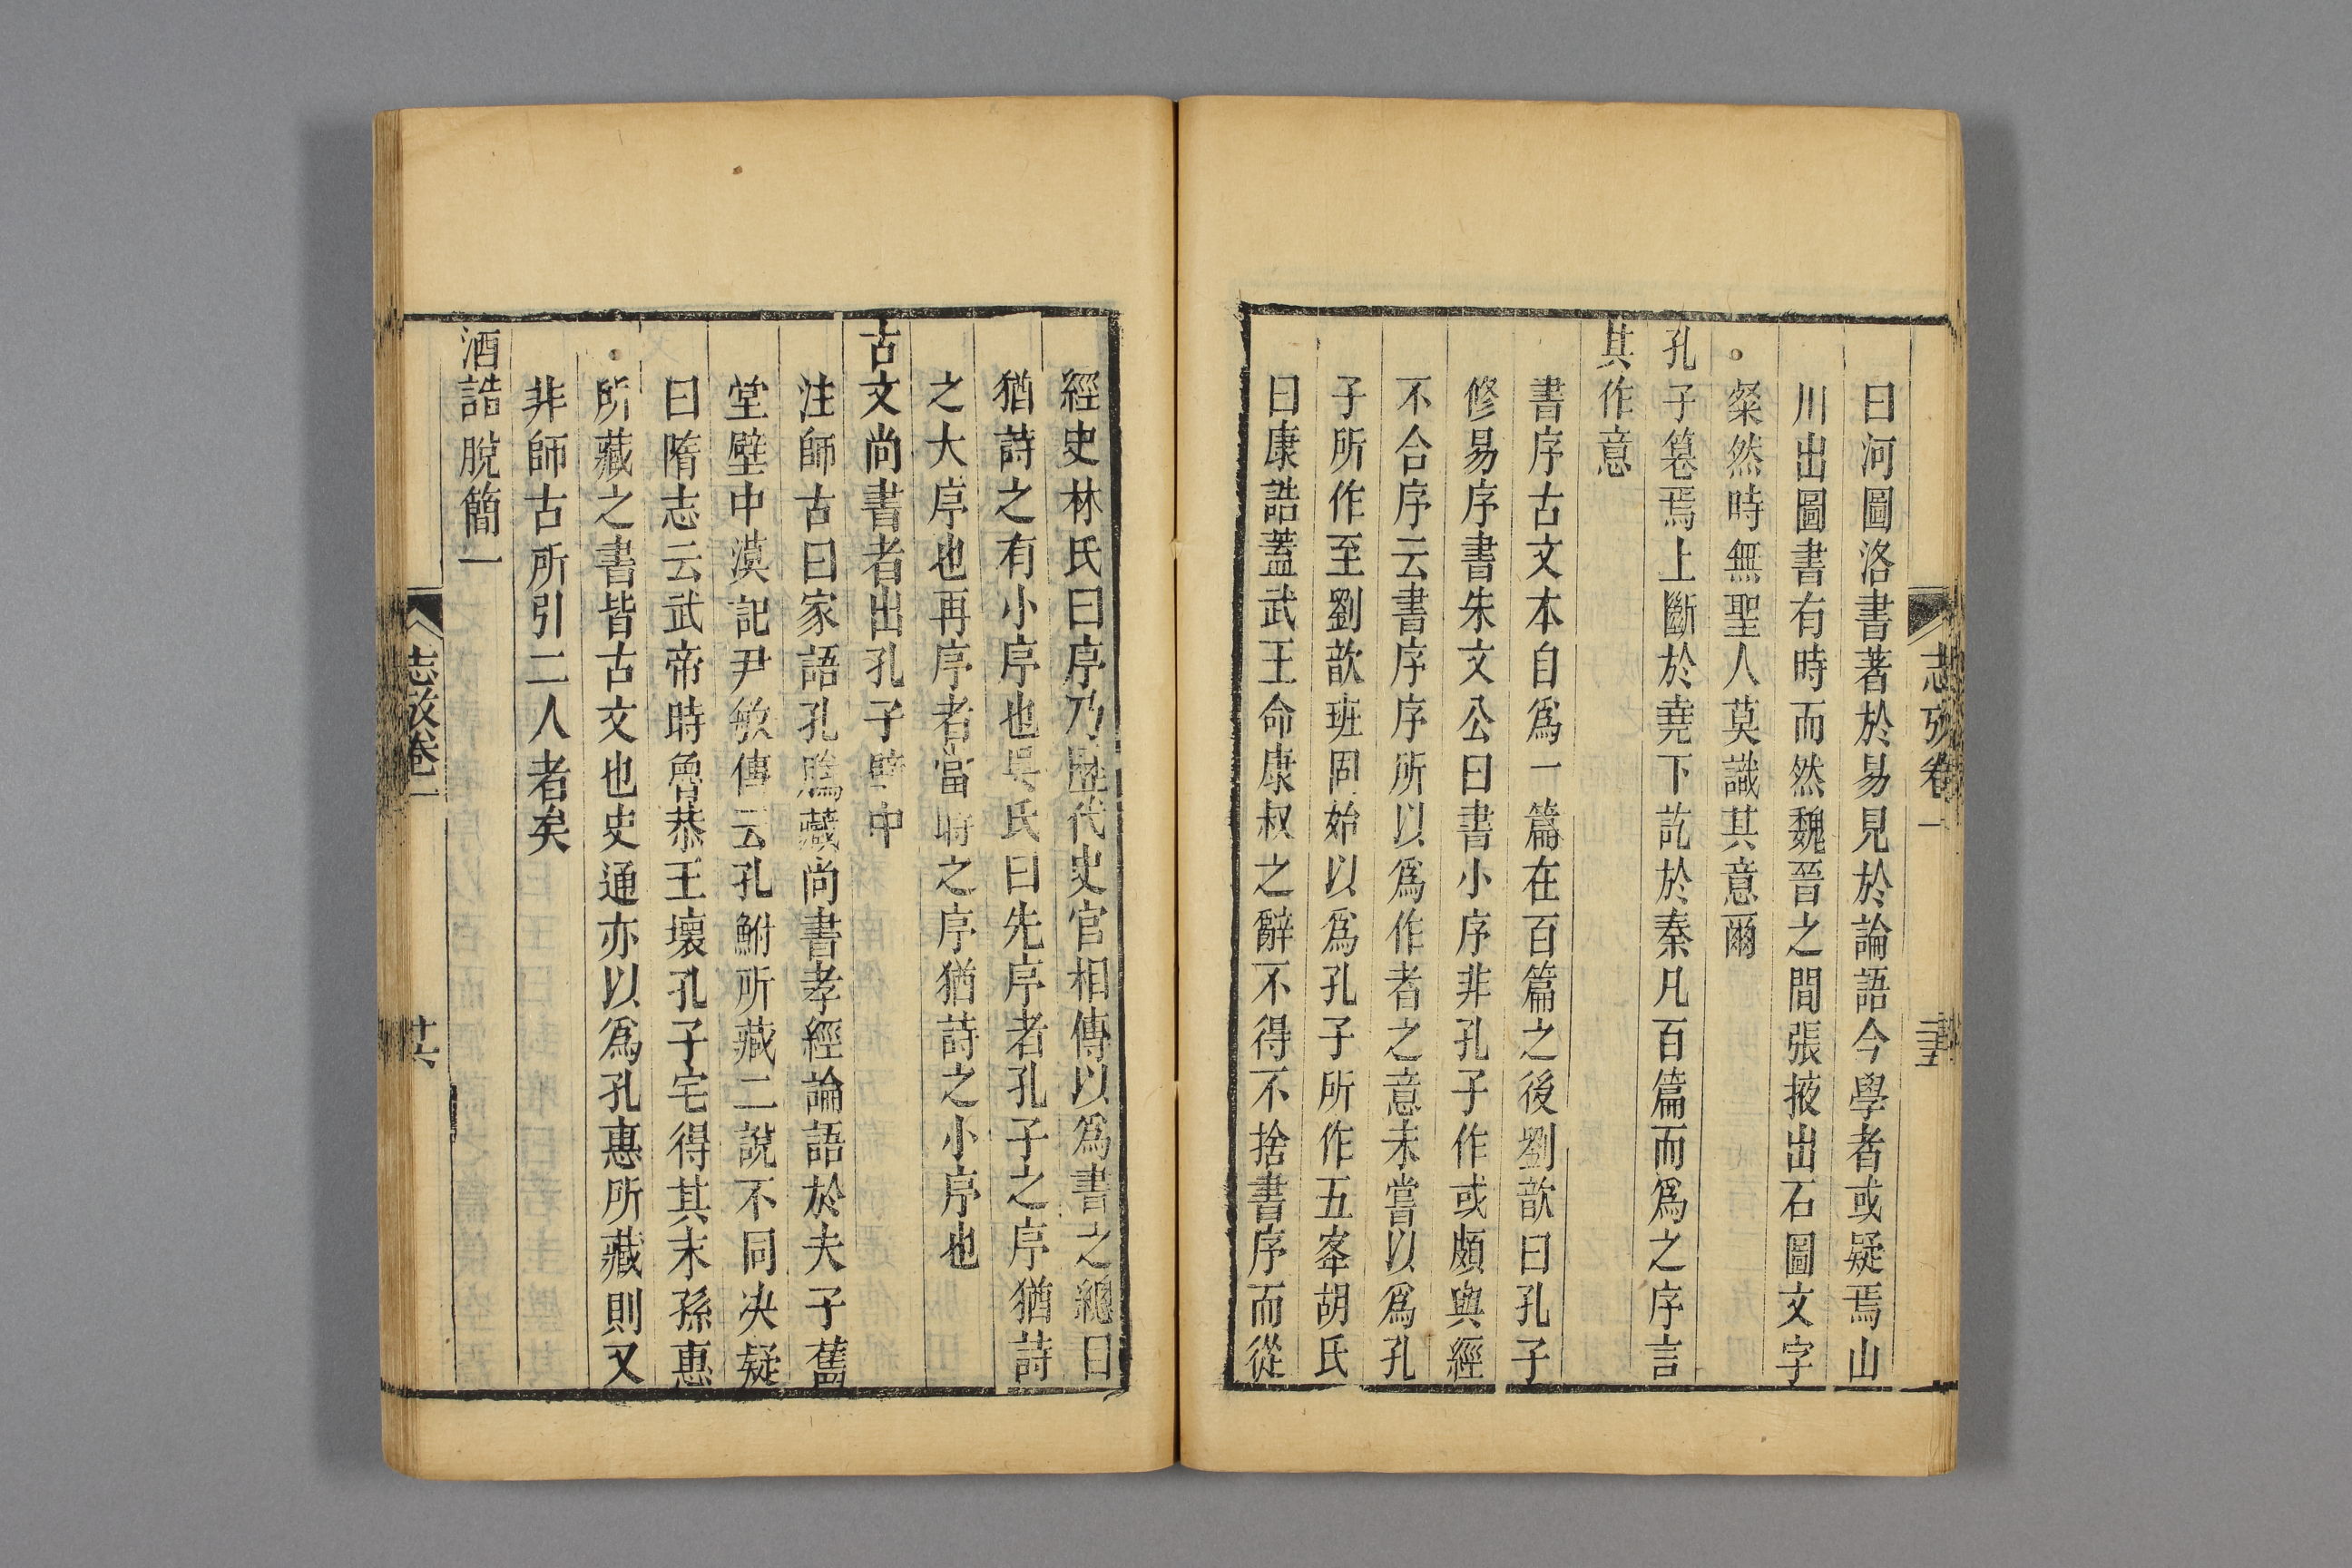 志攷卷一
曰河圖洛書著於易見於論語今學者或疑焉山
川出圖書有時而然魏晉之間張掖出石圖文字
粲然時無聖人莫識其意爾
孔子篹焉上斷於堯下訖於秦凡百篇而爲之序言
其作意
書序古文本自爲一篇在百篇之後劉歆曰孔子
修易序書朱文公曰書小序非孔子作或頗與經
不合序云書序序所以爲作者之意未嘗以爲孔
子所作至劉歆班固始以爲孔子所作五峯胡氏
曰康誥蓋武王命康叔之辭不得不捨書序而從
經史林氏曰序乃歷代史官相傳以爲書之總目
猶詩之有小序也吳氏曰先序者孔子之序猶詩
之大序也再序者當時之序猶詩之小序也
古文尚書者出孔子壁中
注師古曰家語孔騰藏尚書孝經論語於夫子舊
堂壁中漢記尹敏傳云孔鮒所藏二說不同決疑
曰隋志云武帝時魯恭王壞孔子宅得其末孫惠
所藏之書皆古文也史通亦以爲孔惠所藏則又
非師古所引二人者矣
酒誥脫簡一
志攷卷一
廿六